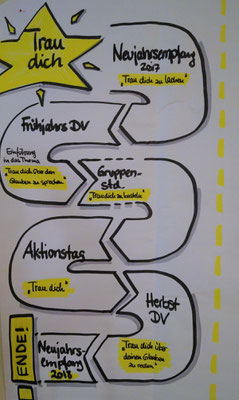 Trau
dich
Neujahrsempfang
2017
"Trau dich zu lachen"
Frühjahrs DV
Einführung
in das Thema
"Trau dich über den
Glauben zu sprechen"
Gruppen-
std.
"Trau dich zu basteln"
Aktionstag
"Trau dich"
Herbst
DV
"Trau dich über
deinen Glauben
zu reden"
Neujahrs-
empfang
2018
ENDE!